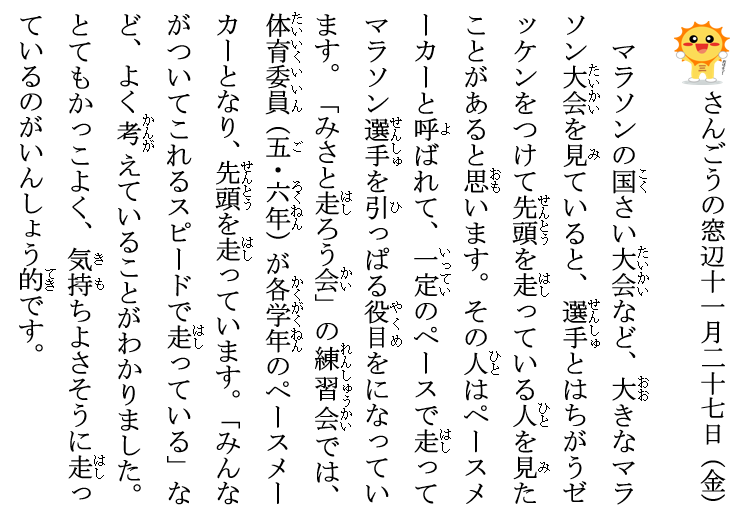 さんごうの窓辺十一月二十七日（金）
マラソンの国さい大会など、大きなマラ
ソン大会を見ていると、選手とはちがうゼ
ッケンをつけて先頭を走っている人を見た
ことがあると思います。その人はペースメ
ーカーと呼ばれて、一定のペースで走って
マラソン選手を引っぱる役目をになってい
ます。「みさと走ろう会」の練習会では、
体育委員（五・六年）が各学年のペースメー
カーとなり、先頭を走っています。「みんな
がついてこれるスピードで走っている」な
ど、よく考えていることがわかりました。
とてもかっこよく、気持ちよさそうに走っ
ているのがいんしょう的です。